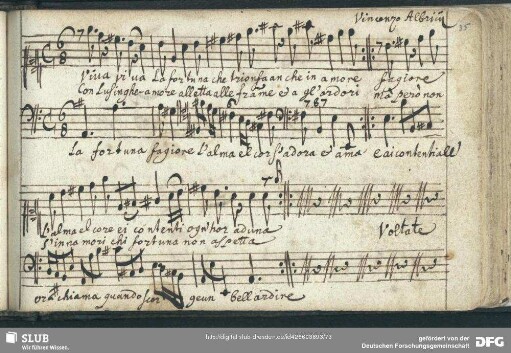 Vincenzo Albrici
35
Viva viva La fortuna che trionfa anche in amore fa gioire
Con Lusinghe amore alletta alle fiamme e a gl'ardori ma però non
7 6 7
La fortuna fa gioire l'alma el cor s'adora e s'ama e ai contenti all'
l'alma el core ei contenti ogn'hor aduna
s'innamori chi fortuna non aspetta
Voltate
ora chiama quando scor geun bell'ardire
SLUB
Wir führen Wissen.
gefördert von der
Deutschen Forschungsgemeinschaft
DFG